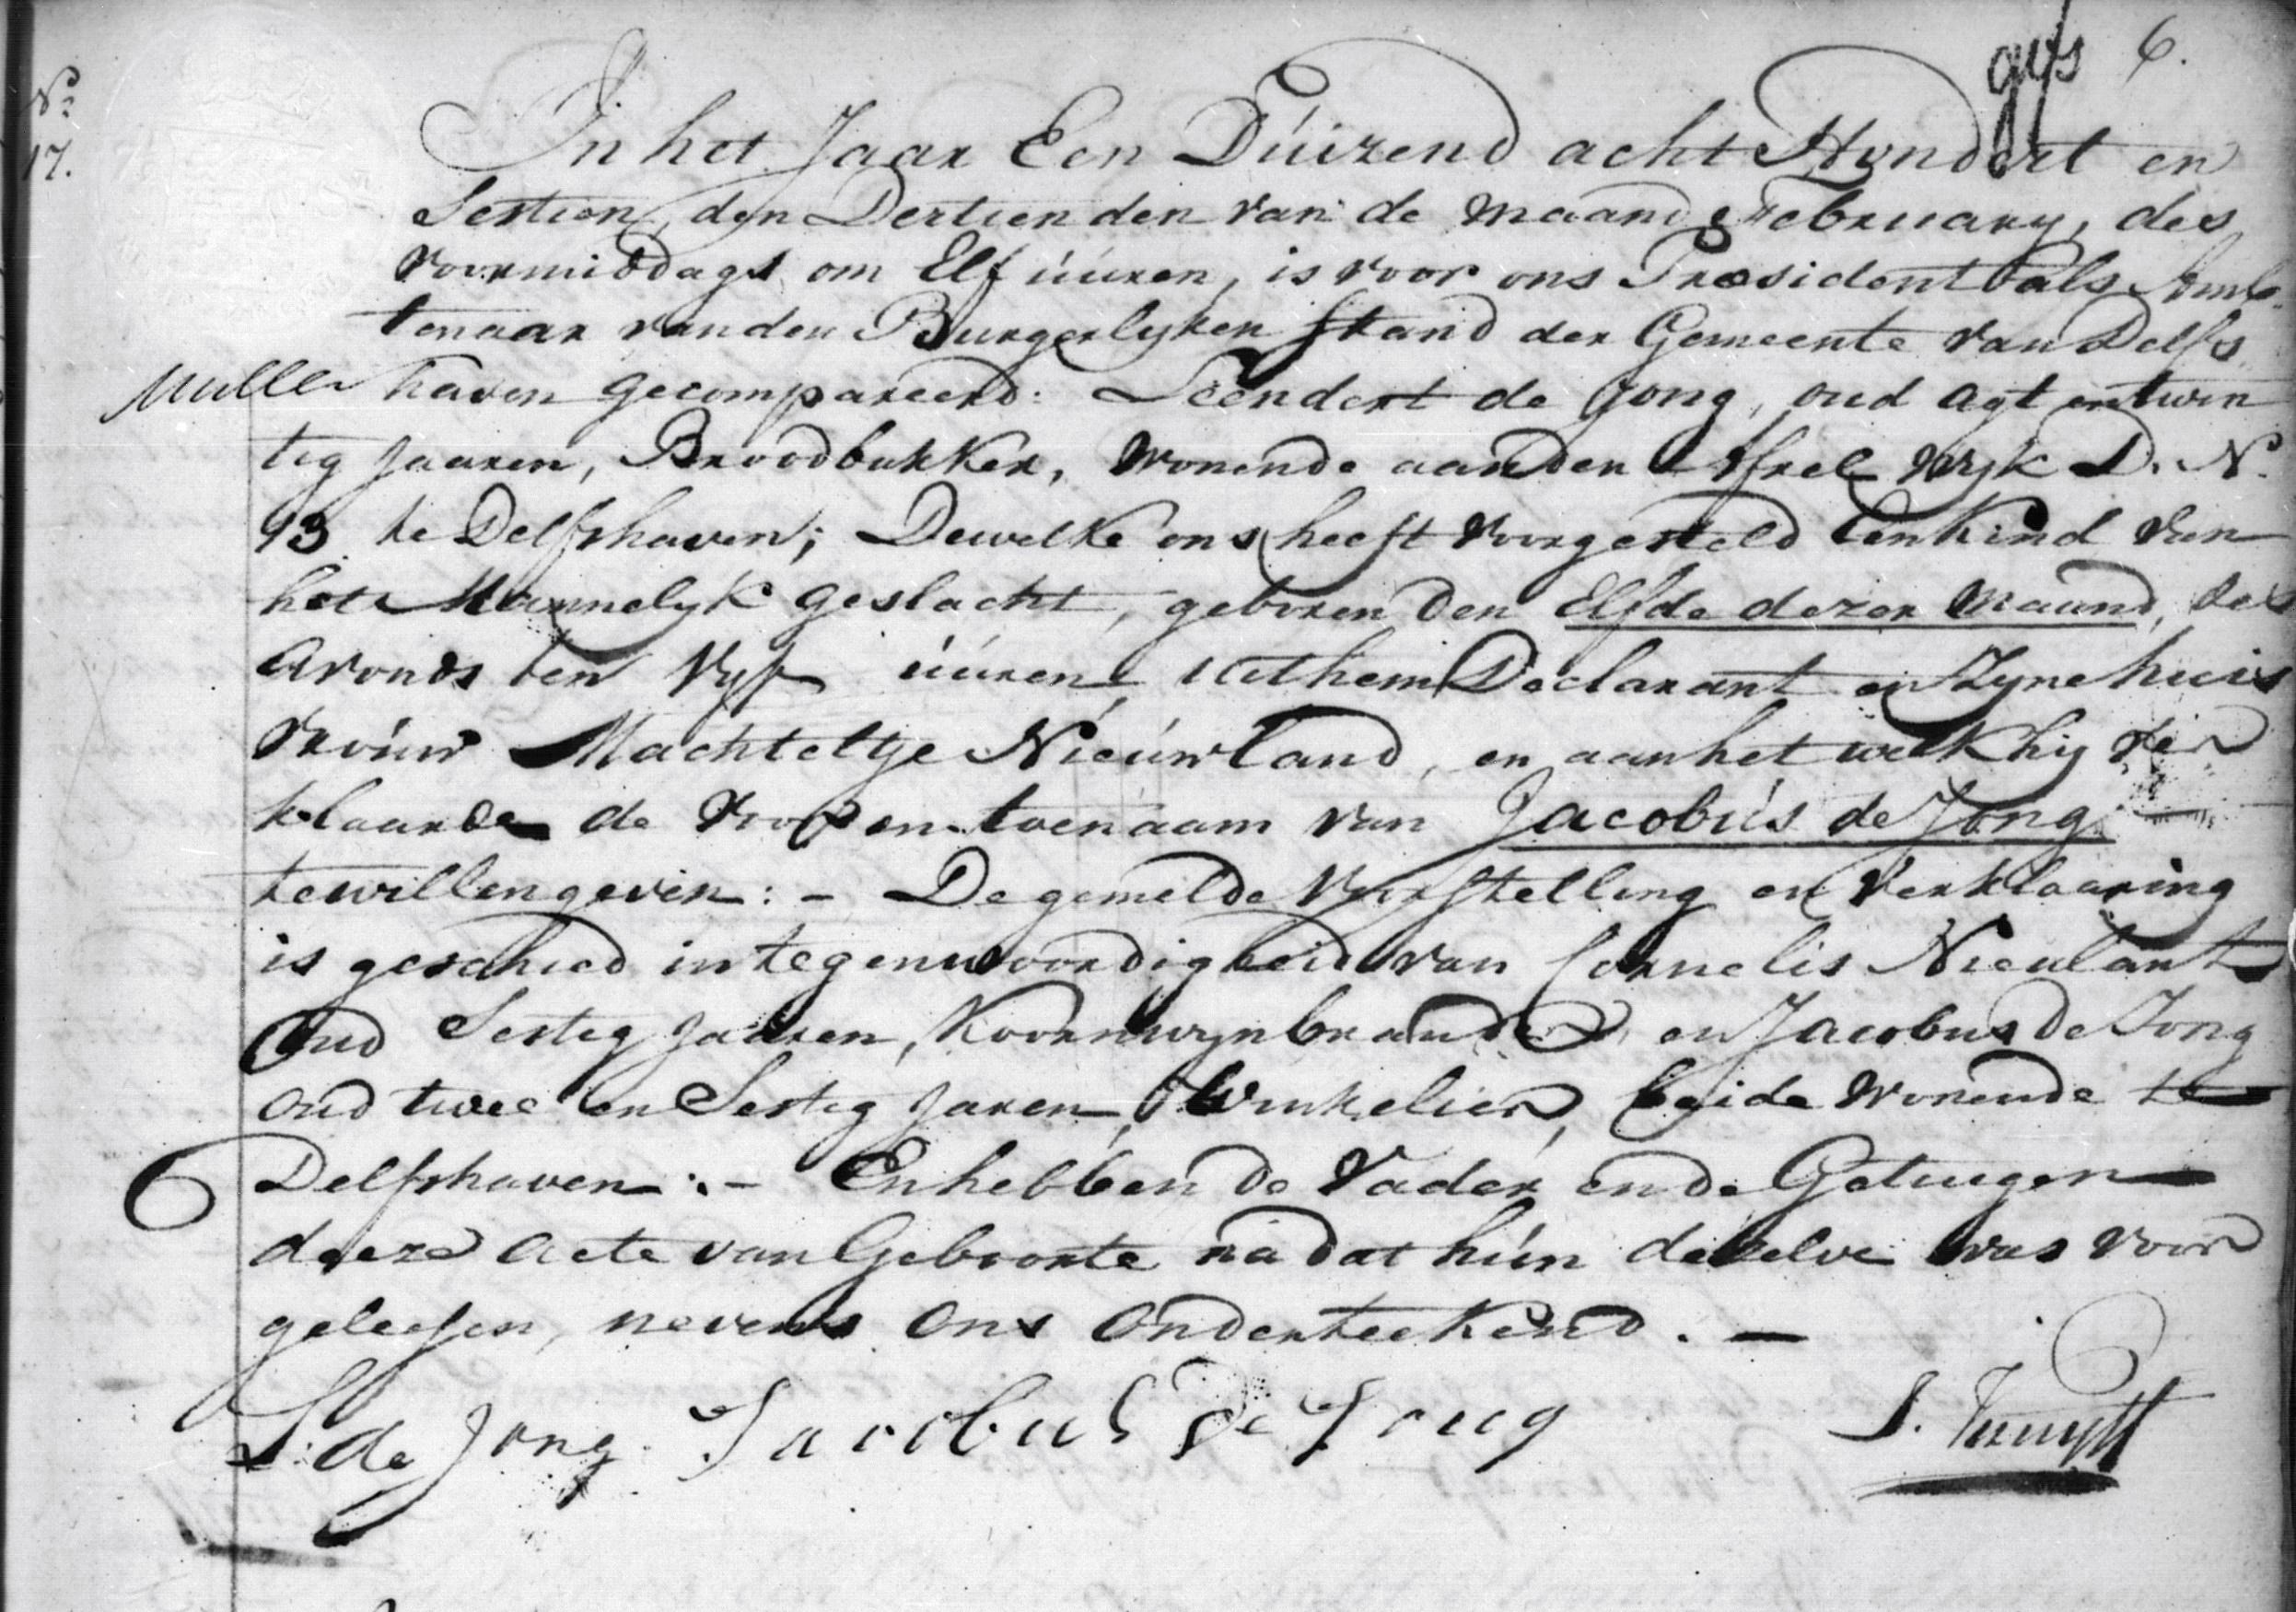 6.
No
17.
In het Jaar Een Duizend acht Hondert en
Sestien, den Dertienden van de maand February, des
voormiddags om Elf uuren, is voor ons President als Amb-
tenaar van den Burgerlyken Stand der Gemeente van Delfs
haven gecompareerd: Leendert de Jong, oud agt en twin
tig Jaaren, Broodbakker, Wonende aan den Yssel Wyk D. No
93 te Delfshaven; Dewelke ons heeft voorgesteld een Kind van
het Mannelyk geslacht, geboren den Elfde dezer Maand, des
avonds ten Vyf uuren, uit hem Declarant en Zyne huis
vrouw Machteltje Nieuwland, en aan het welk hy ver
klaarde de voor en toenaam van Jacobus de Jong
te willen geven: - De gemelde Voorstelling en Verklaaring
is geschied in tegenwoordigheid van Cornelis Nieulant
Oud Sestig Jaaren, Koornwynbrander en Jacobus de Jong
oud twee en Sestig Jaren, Winkelier, beide Wonende te
Delfshaven: - En hebben de Vader en de Getuigen
deeze acte van Geboorte na dat hun dezelve was voor
geleesen, nevens ons onderteekend. -
L. de Jong Jacobus De Jong